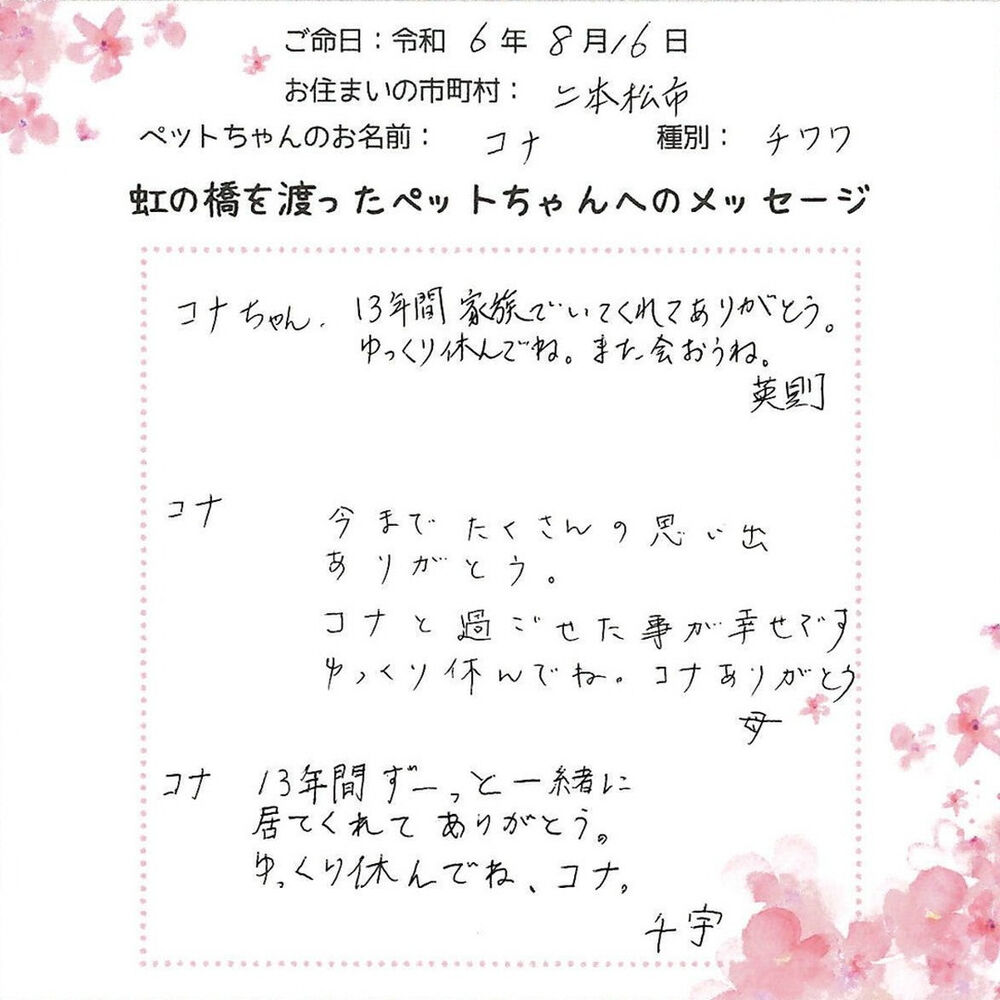 ご命日：令和 6年 8月16日
お住まいの市町村： 二本松市
ペットちゃんのお名前： コナ 種別： チワワ
虹の橋を渡ったペットちゃんへのメッセージ
コナちゃん、13年間家族でいてくれてありがとう。
ゆっくり休んでね。また会おうね。
英則
コナ 今までたくさんの思い出
ありがとう。
コナと過ごせた事が幸せです
ゆっくり休んでね。コナありがとう
母
コナ 13年間ずーっと一緒に
居てくれてありがとう。
ゆっくり休んでね、コナ。
千宇